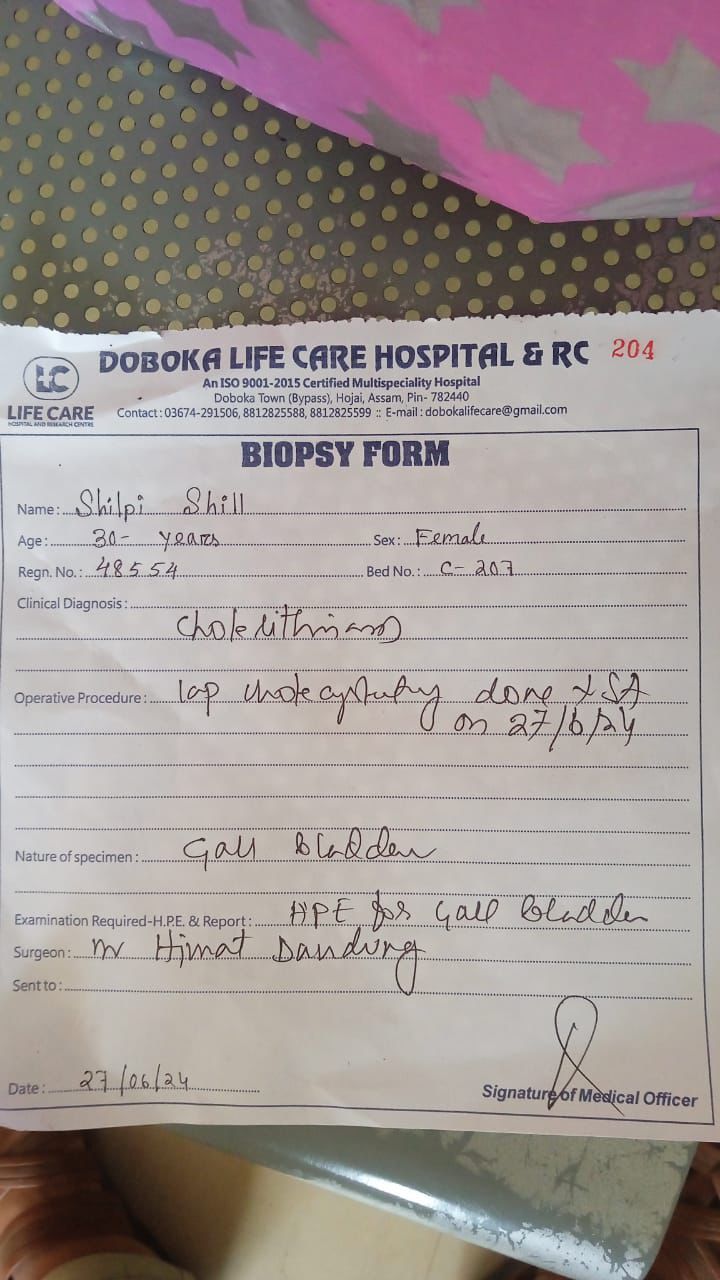 DOBOKA LIFE CARE HOSPITAL & RC 204
LC
LIFE CARE
HOSPITAL AND RESEARCH CENTRE
An ISO 9001-2015 Certified Multispeciality Hospital
Doboka Town (Bypass), Hojai, Assam, Pin- 782440
Contact : 03674-291506, 8812825588, 8812825599 :: E-mail : dobokalifecare@gmail.com
BIOPSY FORM
Name : Shilpi Shill
Age : 30- years Sex : Female
Regn. No. : 48554 Bed No. : C- 207
Clinical Diagnosis :
Operative Procedure : lap done
on 27/6/24
Nature of specimen : Gall Bladder
Examination Required-H.P.E. & Report : HPE for Gall bladder
Surgeon : Himat
Sent to :
Date : 27/06/24
Signature of Medical Officer